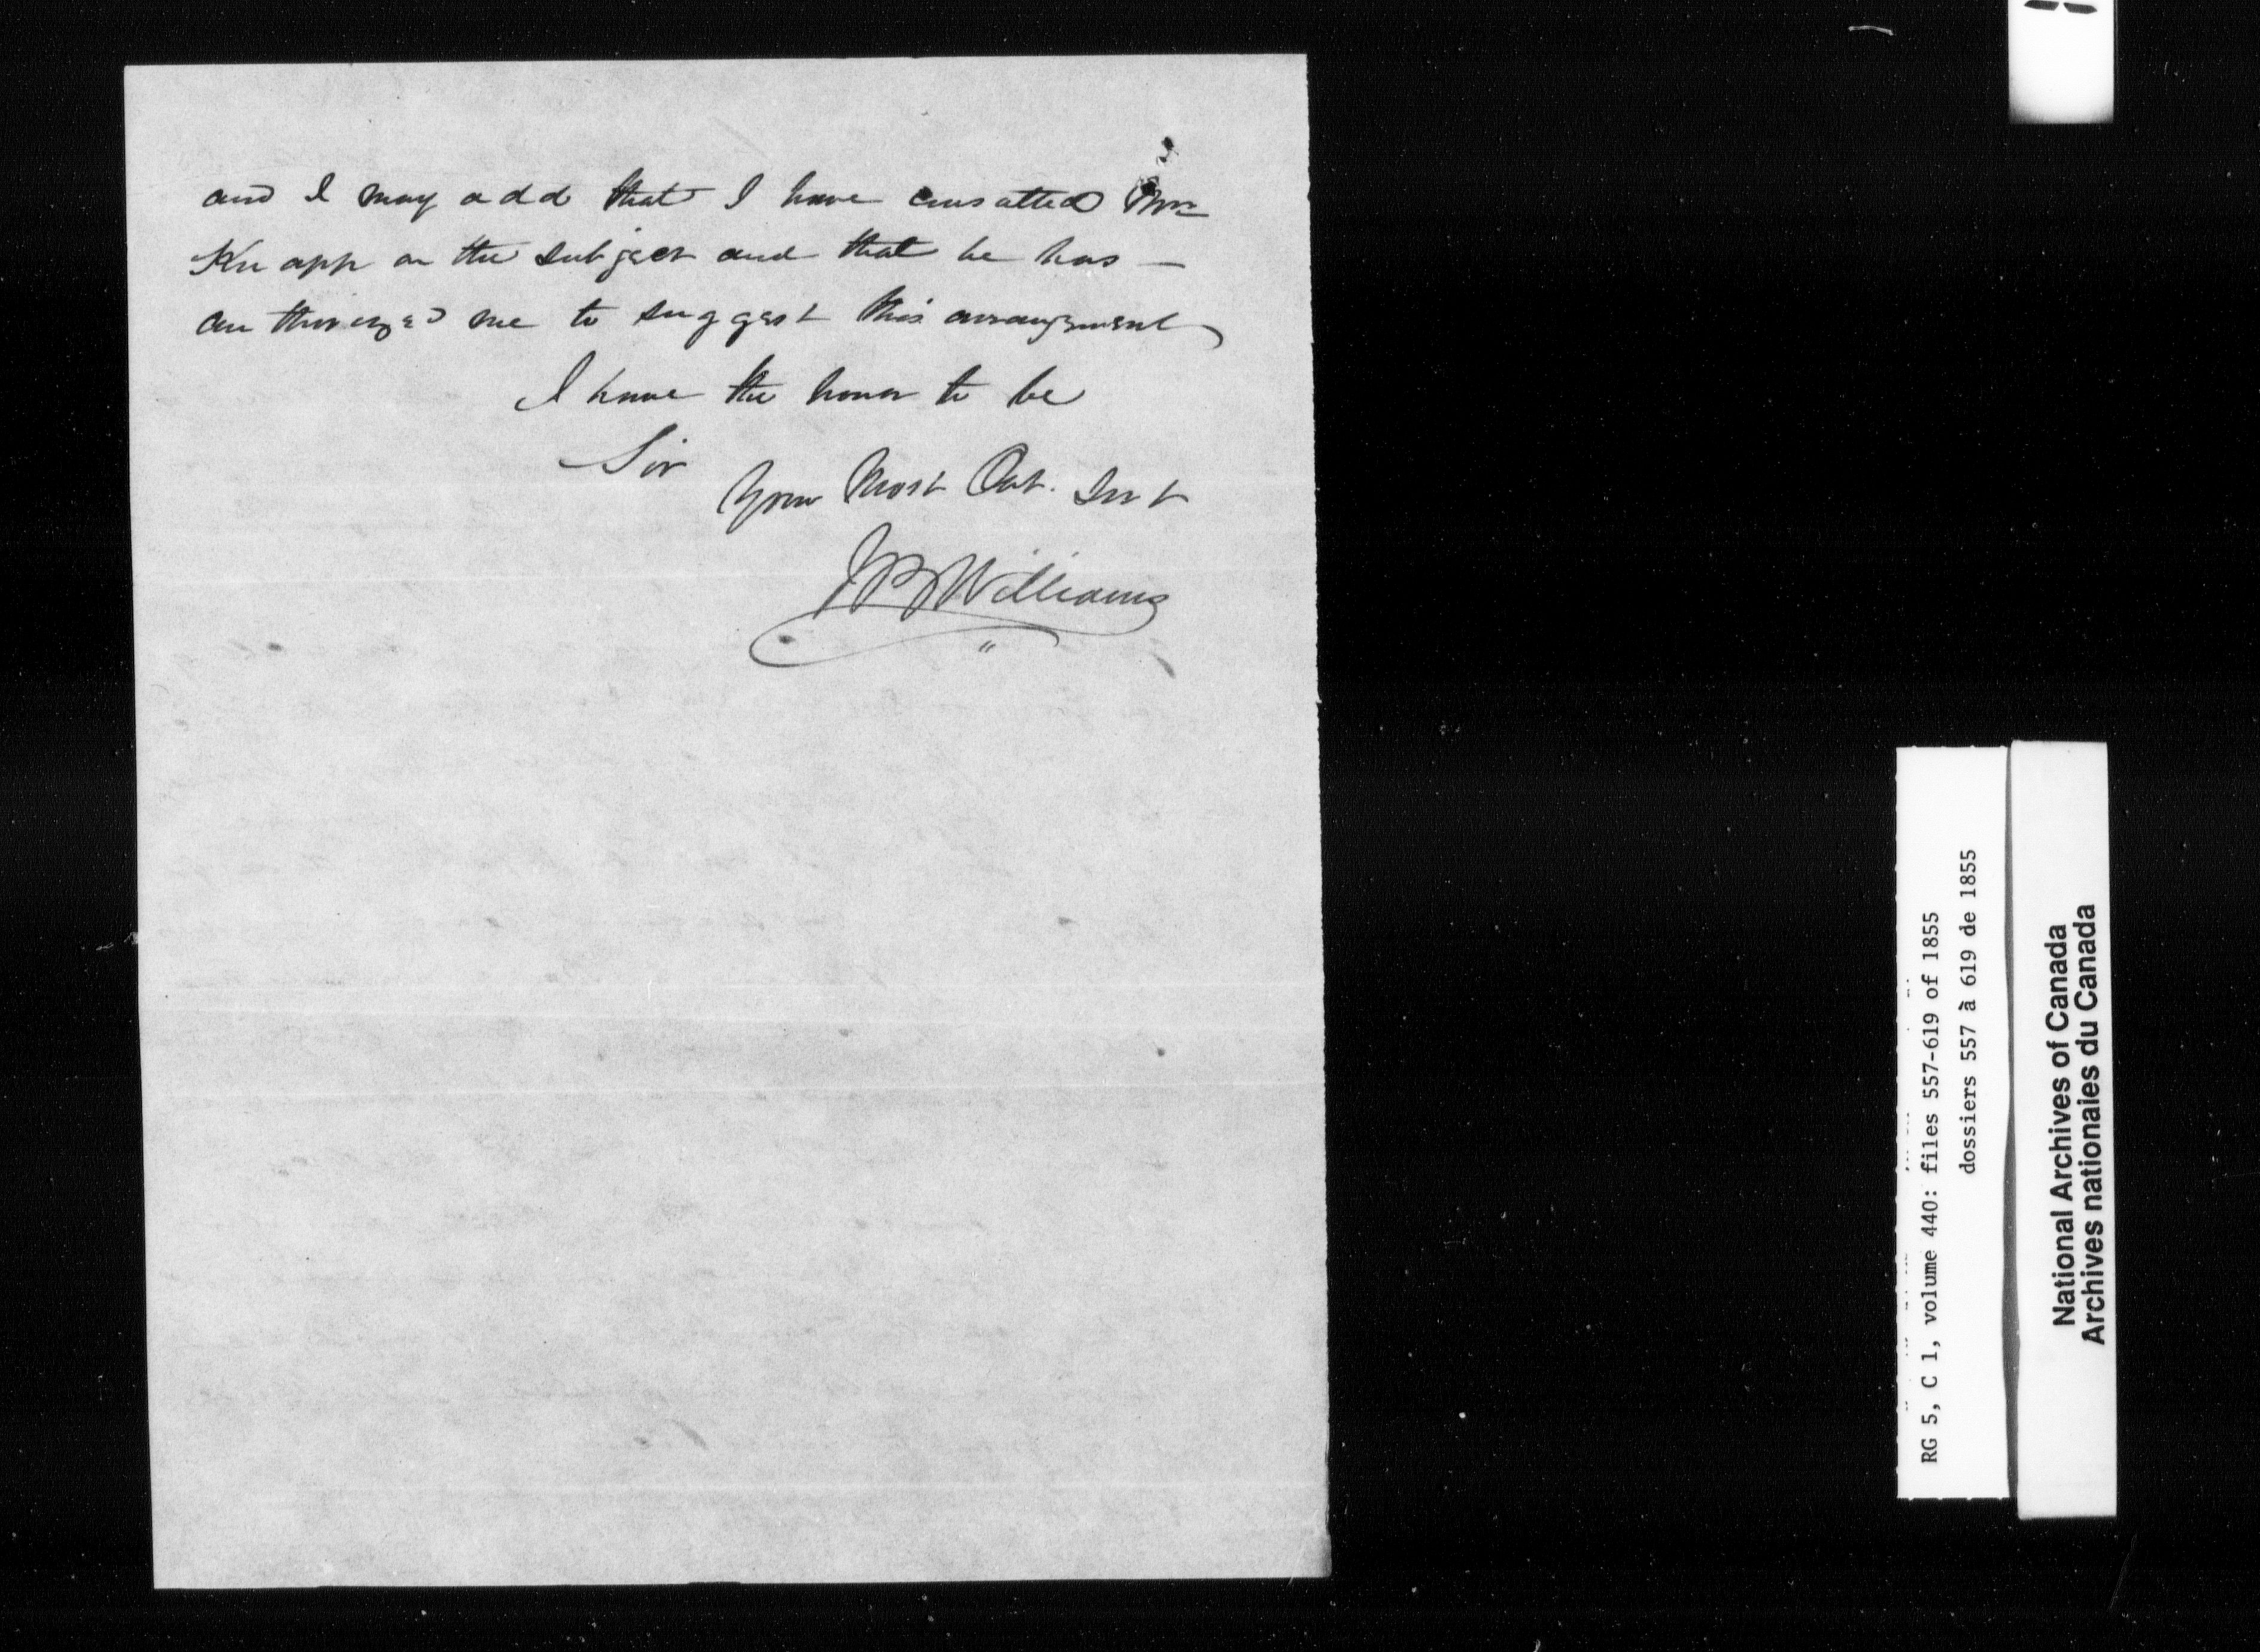 and I may add that I have consulted Mr
Knapp on the subject and that he has —
authorized me to suggest this arrangement
I have the honor to be
Sir
Your Most Obt. Servt
Williams
RG 5, C 1, volume 440: files 557-619 of 1855
dossiers 557 à 619 de 1855
National Archives of Canada
Archives nationales du Canada